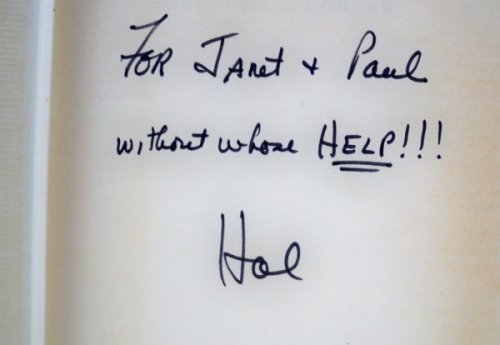 FOR JANET + Paul
without whose HELP!!!
Hal